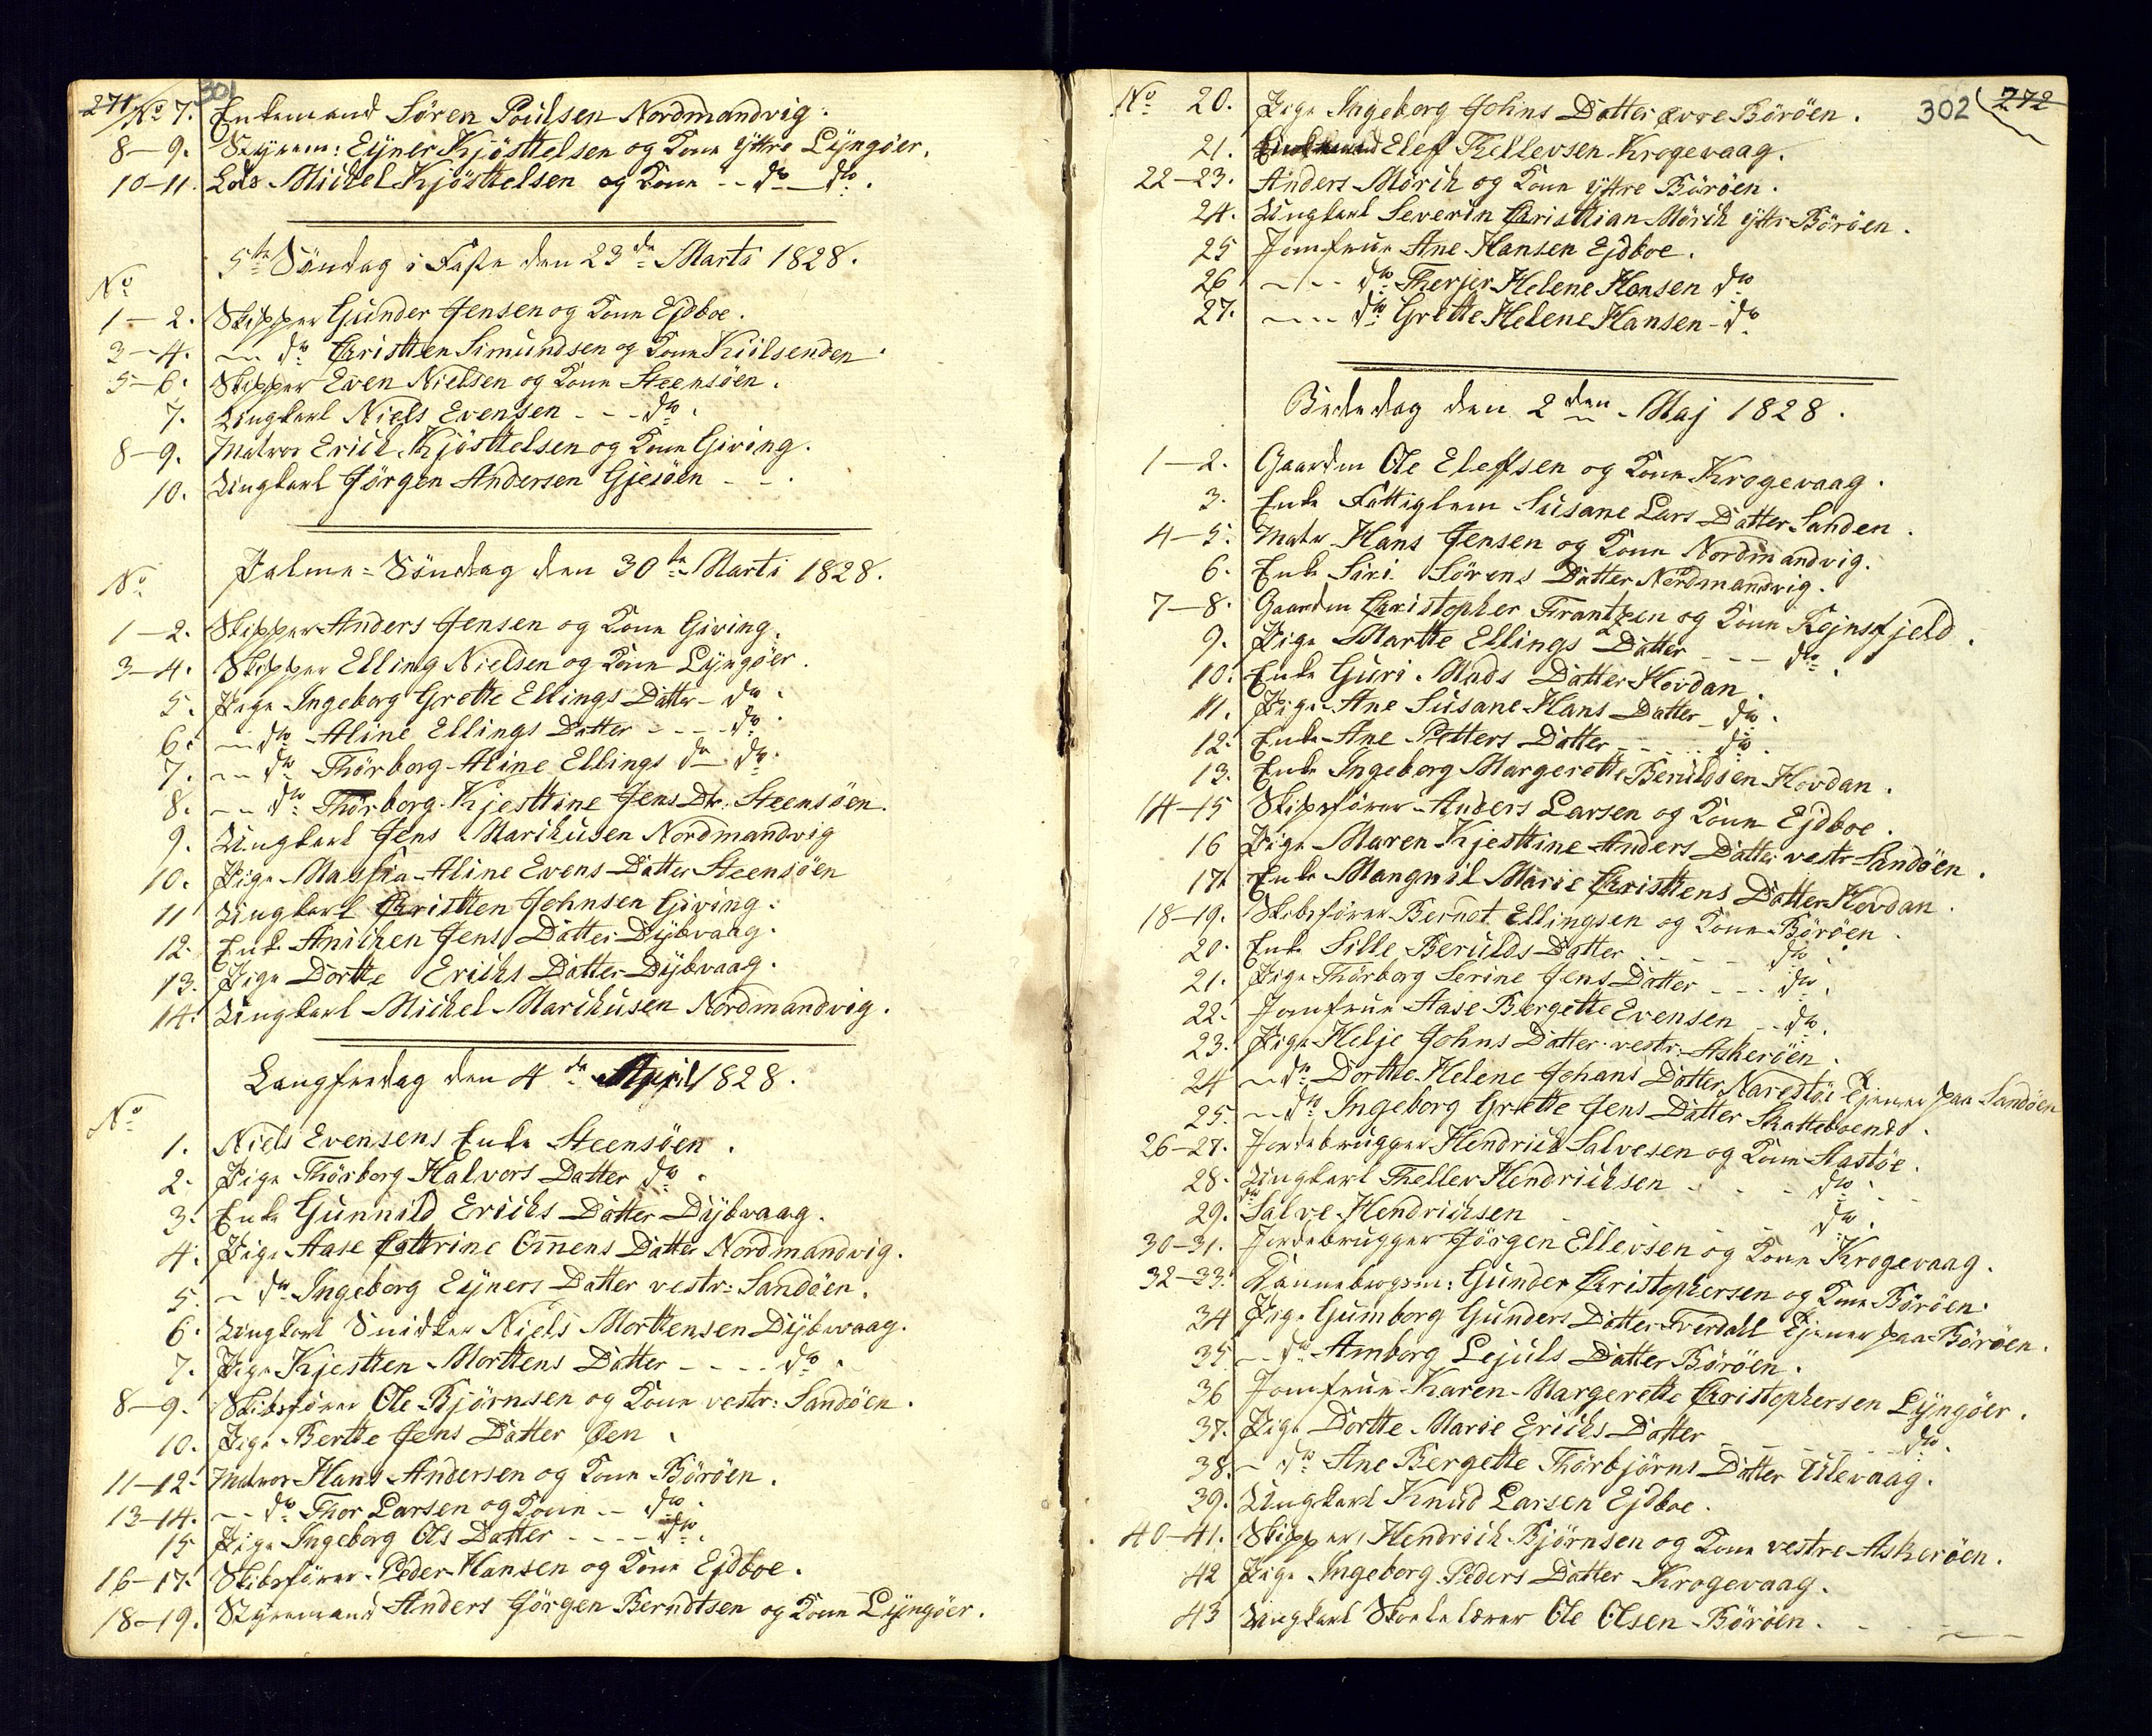 271 301
No 7. Enkemand Sören Poulsen Nordmandvig.
8–9. Styrem: Eyner Kjösttelsen og Kone Yttre Lyngöer.
10–11. Lods Mickel Kjösttelsen og Kone -- do — do.
5te Söndag i Faste den 23de Marts 1828.
No
1–2. Skipper Gunder Jensen og Kone Ejdboe.
3–4. --- do Christten Simundsen og Kone Kiilsenden
5–6. Skipper Even Nielsen og Kone Steensöen.
7. Ungkarl Niels Evensen - - - do.
8–9. Matros Erich Kjösttelsen og Kone Giving.
10. Ungkarl Jörgen Andersen Gjesöen - - .
No Palme=Söndag den 30te Marts 1828.
1–2. Skipper Anders Jensen og Kone Giving.
3–4. Skipper Elling Nielsen og Kone Lyngöer.
5. Pige Ingeborg Grette Ellings Datter - do.
6. --- do Aline Ellings Datter - - - - do.
7. --- do Thörborg Aline Ellings do do.
8. --- do Thörborg Kjesttine Jens Dtr. Steensöen.
9. Ungkarl Jens Marchusen Nordmandvig
10. Pige Maskia Aline Evens Datter Steensöen
11 Ungkarl Christten Johnsen Giving.
12. Enke Anichen Jens Datter Dybvaag.
13. Pige Dortte Erichs Datter Dybvaag.
14. Ungkarl Mickel Marchusen Nordmandvig.
Langfredag den 4de April 1828.
No
1. Niels Evensens Enke Steensöen.
2. Pige Thörborg Halvors Datter do.
3. Enke Gunnild Erichs Datter Dybvaag.
4. Pige Aase Cattrine Omens Datter Nordmandvig.
5. - do Ingeborg Eyners Datter vestr: Sandöen.
6. Ungkarl Snidker Niels Morttensen Dybvaag.
7. Pige Kjestten Morttens Datter - - - - do.
8–9. Skibsförer Ole Björnsen og Kone vestr: Sandöen.
10. Pige Bertte Jens Datter Öen.
11–12. Matros Hans Andersen og Kone Böröen.
13–14. -- do Thor Larsen og Kone -- do.
15 Pige Ingeborg Ols Datter - - - - do.
16–17. Skibsförer Peder Hansen og Kone Ejdboe.
18–19. Styremand Anders Jörgen Berndtsen og Kone Lyngöer.
302 272
No 20. Pige Ingeborg Johns Datter övre Böröen.
21. Elef Thellevsen Krogevaag.
22–23. Anders Mörch og Kone yttre Böröen.
24. Ungkarl Severin Christtian Mörch yttr Böröen.
25 Jomfrue Ane Hansen Ejdboe.
26 - - - do Therjer Helene Hansen do
27. - - - do Grette Helene Hansen - do
Bededag den 2den Maj 1828.
1–2. Gaardm Ole Elefsen og Kone Krogevaag.
3. Enke Fattiglem Susane Lars Datter Sanden.
4–5. Matr Hans Jensen og Kone Nordmandvig.
6. Enke Siri Sörens Datter Nordmandvig.
7–8. Gaardm Christopher Frantzen og Kone Rejnsfjeld.
9. Pige Martte Ellings Datter - - - do.
10. Enke Guri Mads Datter Hovdan.
11. Pige Ane Susane Hans Datter - do.
12. Enke Ane Petters Datter - - - - do.
13. Enke Ingeborg Margerette Beruldsen Hovdan.
14–15 Skibsförer Anders Larsen og Kone Ejdboe.
16 Pige Maren Kjesttine Anders Datter vestr Sandöen.
17. Enke Mangnil Marie Christtens Datter Hovdan.
18–19. Skibsförer Berndt Ellingsen og Kone Böröen.
20. Enke Sille Berulds Datter - - - - do.
21. Pige Thörborg Serine Jens Datter - - - do.
22. Jomfrue Aase Bergette Evensen - - do.
23. Pige Helje Johns Datter vestr: Askeröen.
24 --- do Dortte Helene Johans Datter Narestöe tjener paa Sandöen
25. --- do Ingeborg Grette Jens Datter Skatteboends.
26–27. Jordebrugger Hendrich Salvesen og Kone Aastöe.
28. Ungkarl Thellev Hendrichsen - - - do.
29. do Salve Hendrichsen - - - do.
30–31. Jordebrugger Jörgen Ellevsen og Kone Krogevaag.
32–33. Dannebrogsm: Gunder Christophersen og Kone Böröen.
34 Pige Gumborg Gunders Datter Tverdall tjener paa Böröen.
35 --- do Amborg Lejuls Datter Böröen.
36 Jomfrue Karen Margerette Christophersen Lyngöer.
37. Pige Dortte Marie Erichs Datter - - - - - do.
38. - do Ane Bergette Thörbjörns Datter Ulevaag.
39. Ungkarl Knud Larsen Ejdboe.
40–41. Skipper Hendrich Björnsen og Kone vestre Askeröen.
42 Pige Ingeborg Peders Datter Krogevaag.
43 Ungkarl Skolelærer Ole Olsen Böröen.